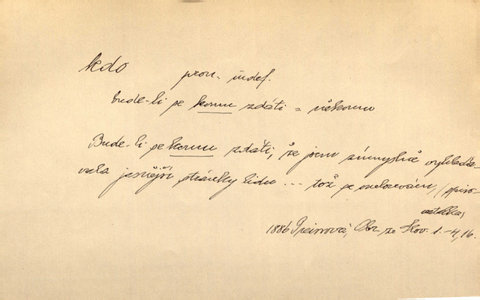 kdo pron. indef.
bude-li se komu zdáti = někomu
Bude-li se komu zdáti, že jsem zúmyslně vyhledá-
vala jasnější stránky lidu ... tož se neohování
1886 Preissová, Obr. ze Slov. 1.